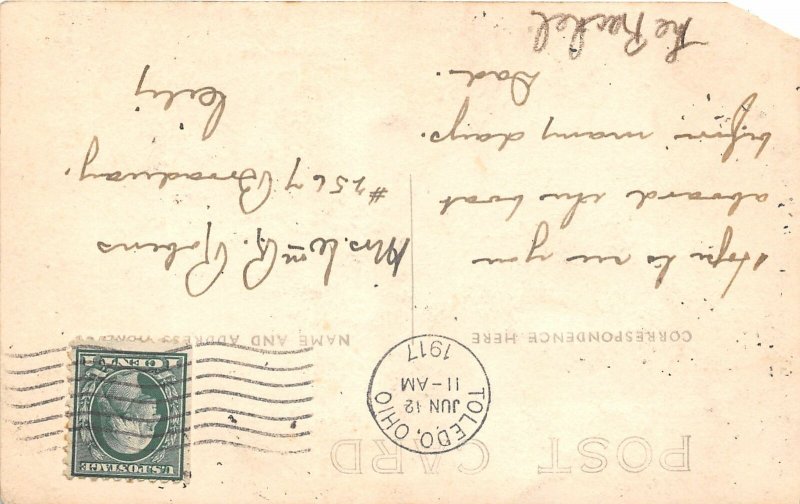 POST CARD
TOLEDO, OHIO
JUN 12
11-AM
1917
U.S. POSTAGE
1 CENT 1
CORRESPONDENCE HERE
NAME AND ADDRESS HERE
Hope to see you
aboard the boat
before many days.
Dad.
The
Mrs. Wm R. Robens
#2567 Broadway.
City